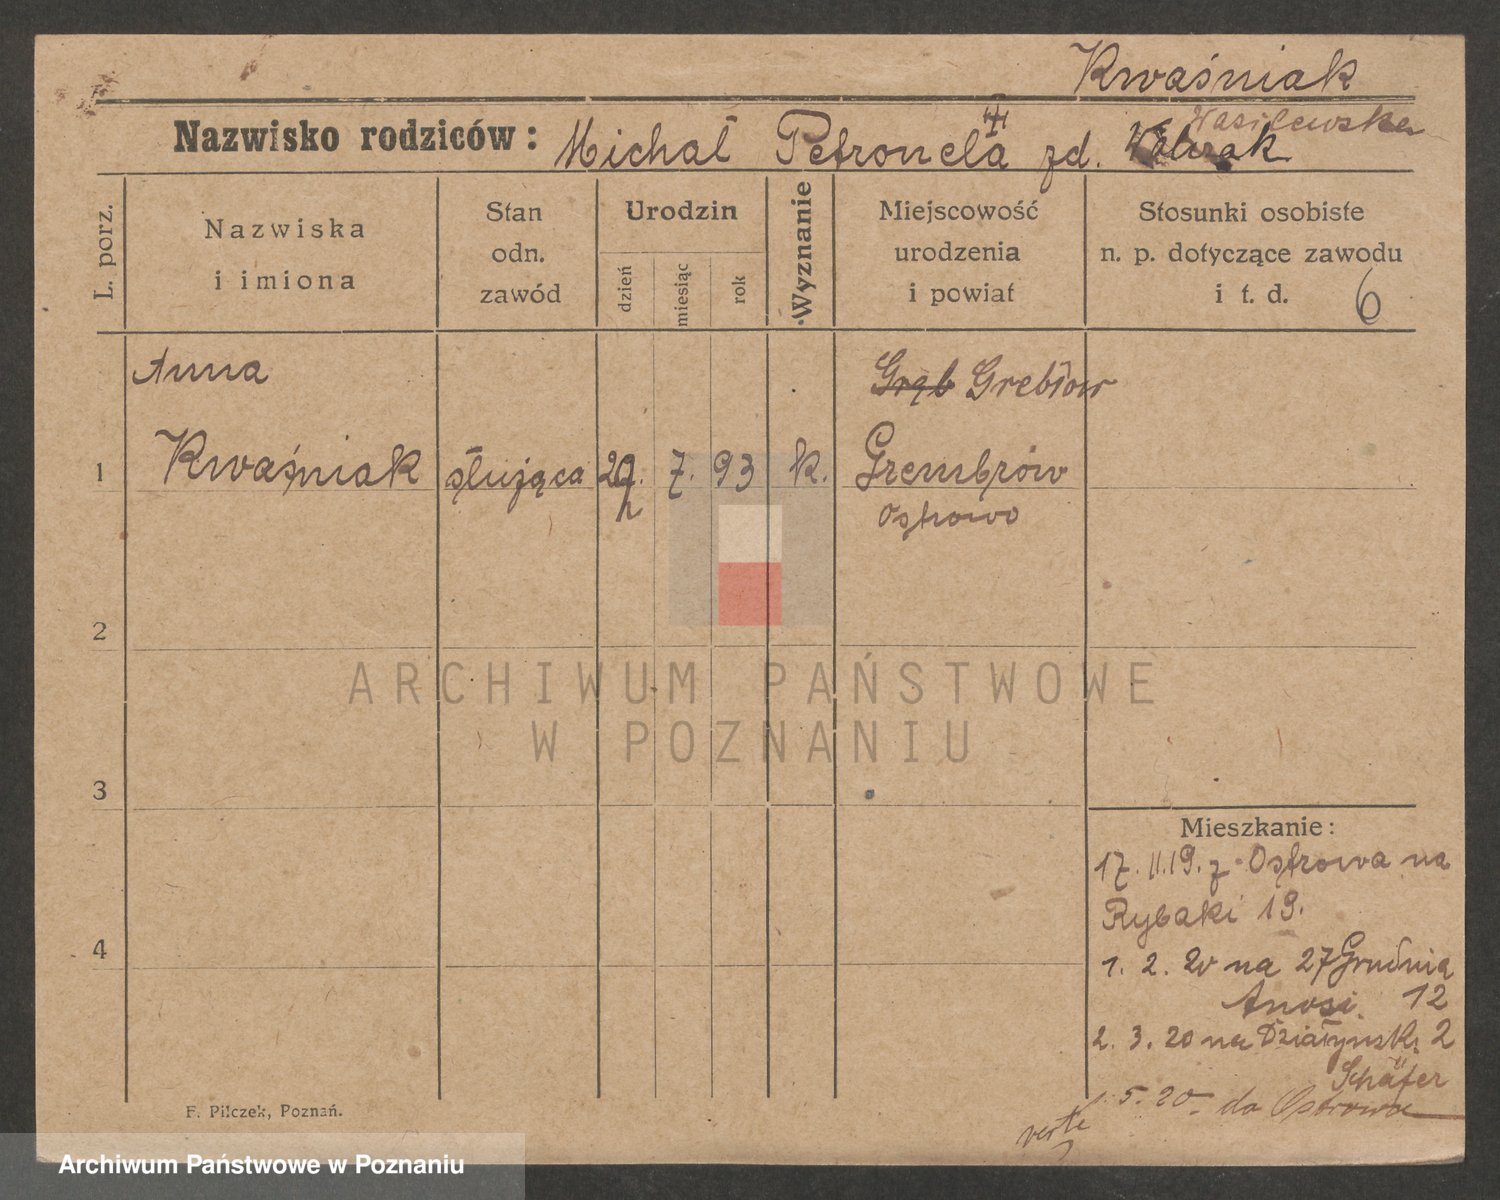 Kwaśniak
Wasilewska
Nazwisko rodziców: Michał Petronela zd.
L. porz.
Nazwiska
i imiona
Stan
odn.
zawód
Urodzin
dzień
miesiąc
rok
Wyznanie
Miejscowość
urodzenia
i powiat
Stosunki osobiste
n. p. dotyczące zawodu
i t. d. 6
Anna
Grąb Grebłow
1 Kwaśniak służąca 29. 7. 93 k. Grembrów
Ostrowo
2
3
4
Mieszkanie:
17. 11.19. z Ostrowa na
Rybaki 19.
1. 2. 20 na 27 Grudnia
12
2. 3. 20 na Działyńsk. 2
Schäfer
5. 20 do Ostrowa
verte
F. Pilczek, Poznań.
ARCHIWUM PAŃSTWOWE
W POZNANIU
Archiwum Państwowe w Poznaniu